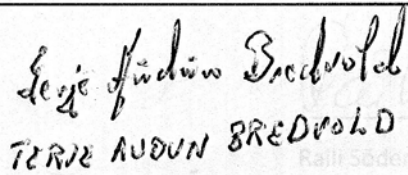 Terje Audun Bredvold
TERJE AUDUN BREDVOLD
Raili Söder